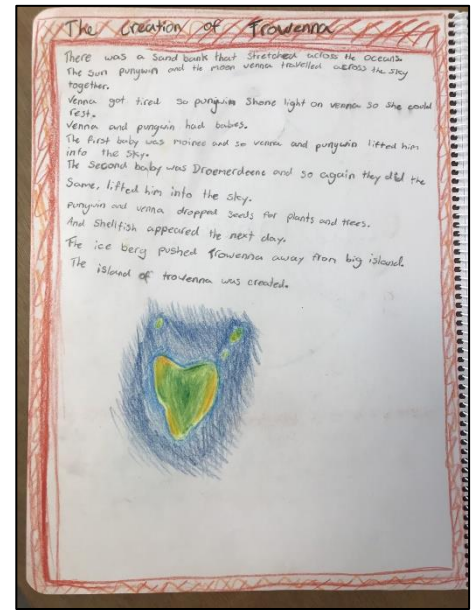 The Creation of Trowenna
There was a Sand bank that stretched across the oceans.
The sun punywin and the moon venna travelled across the sky
together.
Venna got tired so punywin Shone light on venna so she could
rest.
Venna and punywin had babies.
The first baby was moinee and so venna and punywin lifted him
into the sky.
The second baby was Droemerdeene and so again they did the
Same, lifted him into the sky.
punywin and venna dropped seeds for plants and trees.
And Shellfish appeared the next day.
The ice berg pushed Trowenna away from big island.
The island of trowenna was created.